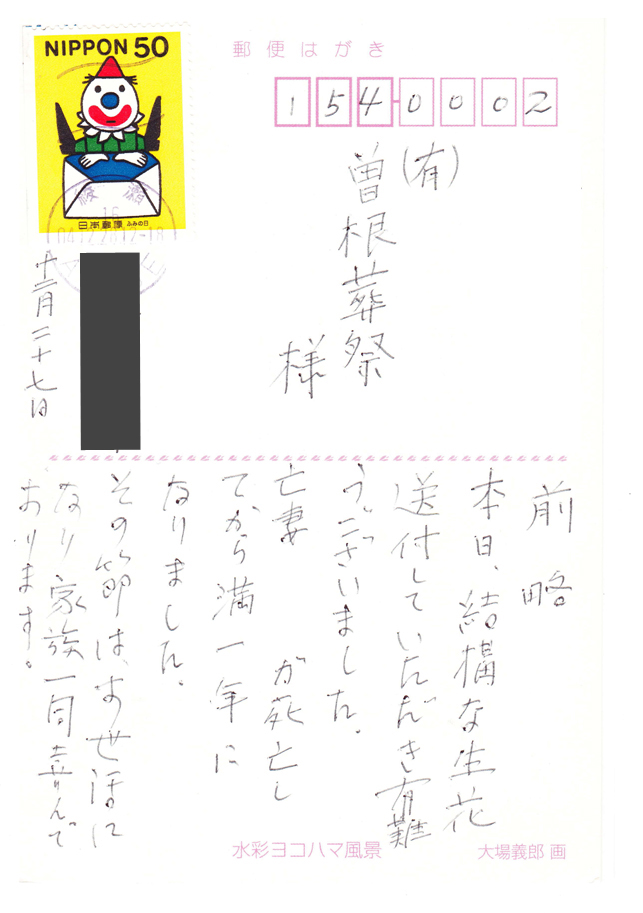 NIPPON 50
日本郵便 ふみの日
郵便はがき
154-0002
(有)
曽根葬祭
様
十二月二十七日
前略
本日、結構な生花
送付していただき有難
うございました。
亡妻 が死亡し
てから満一年に
なりました。
その節は、お世話に
なり家族一同喜んで
おります。
水彩ヨコハマ風景
大場義郎 画